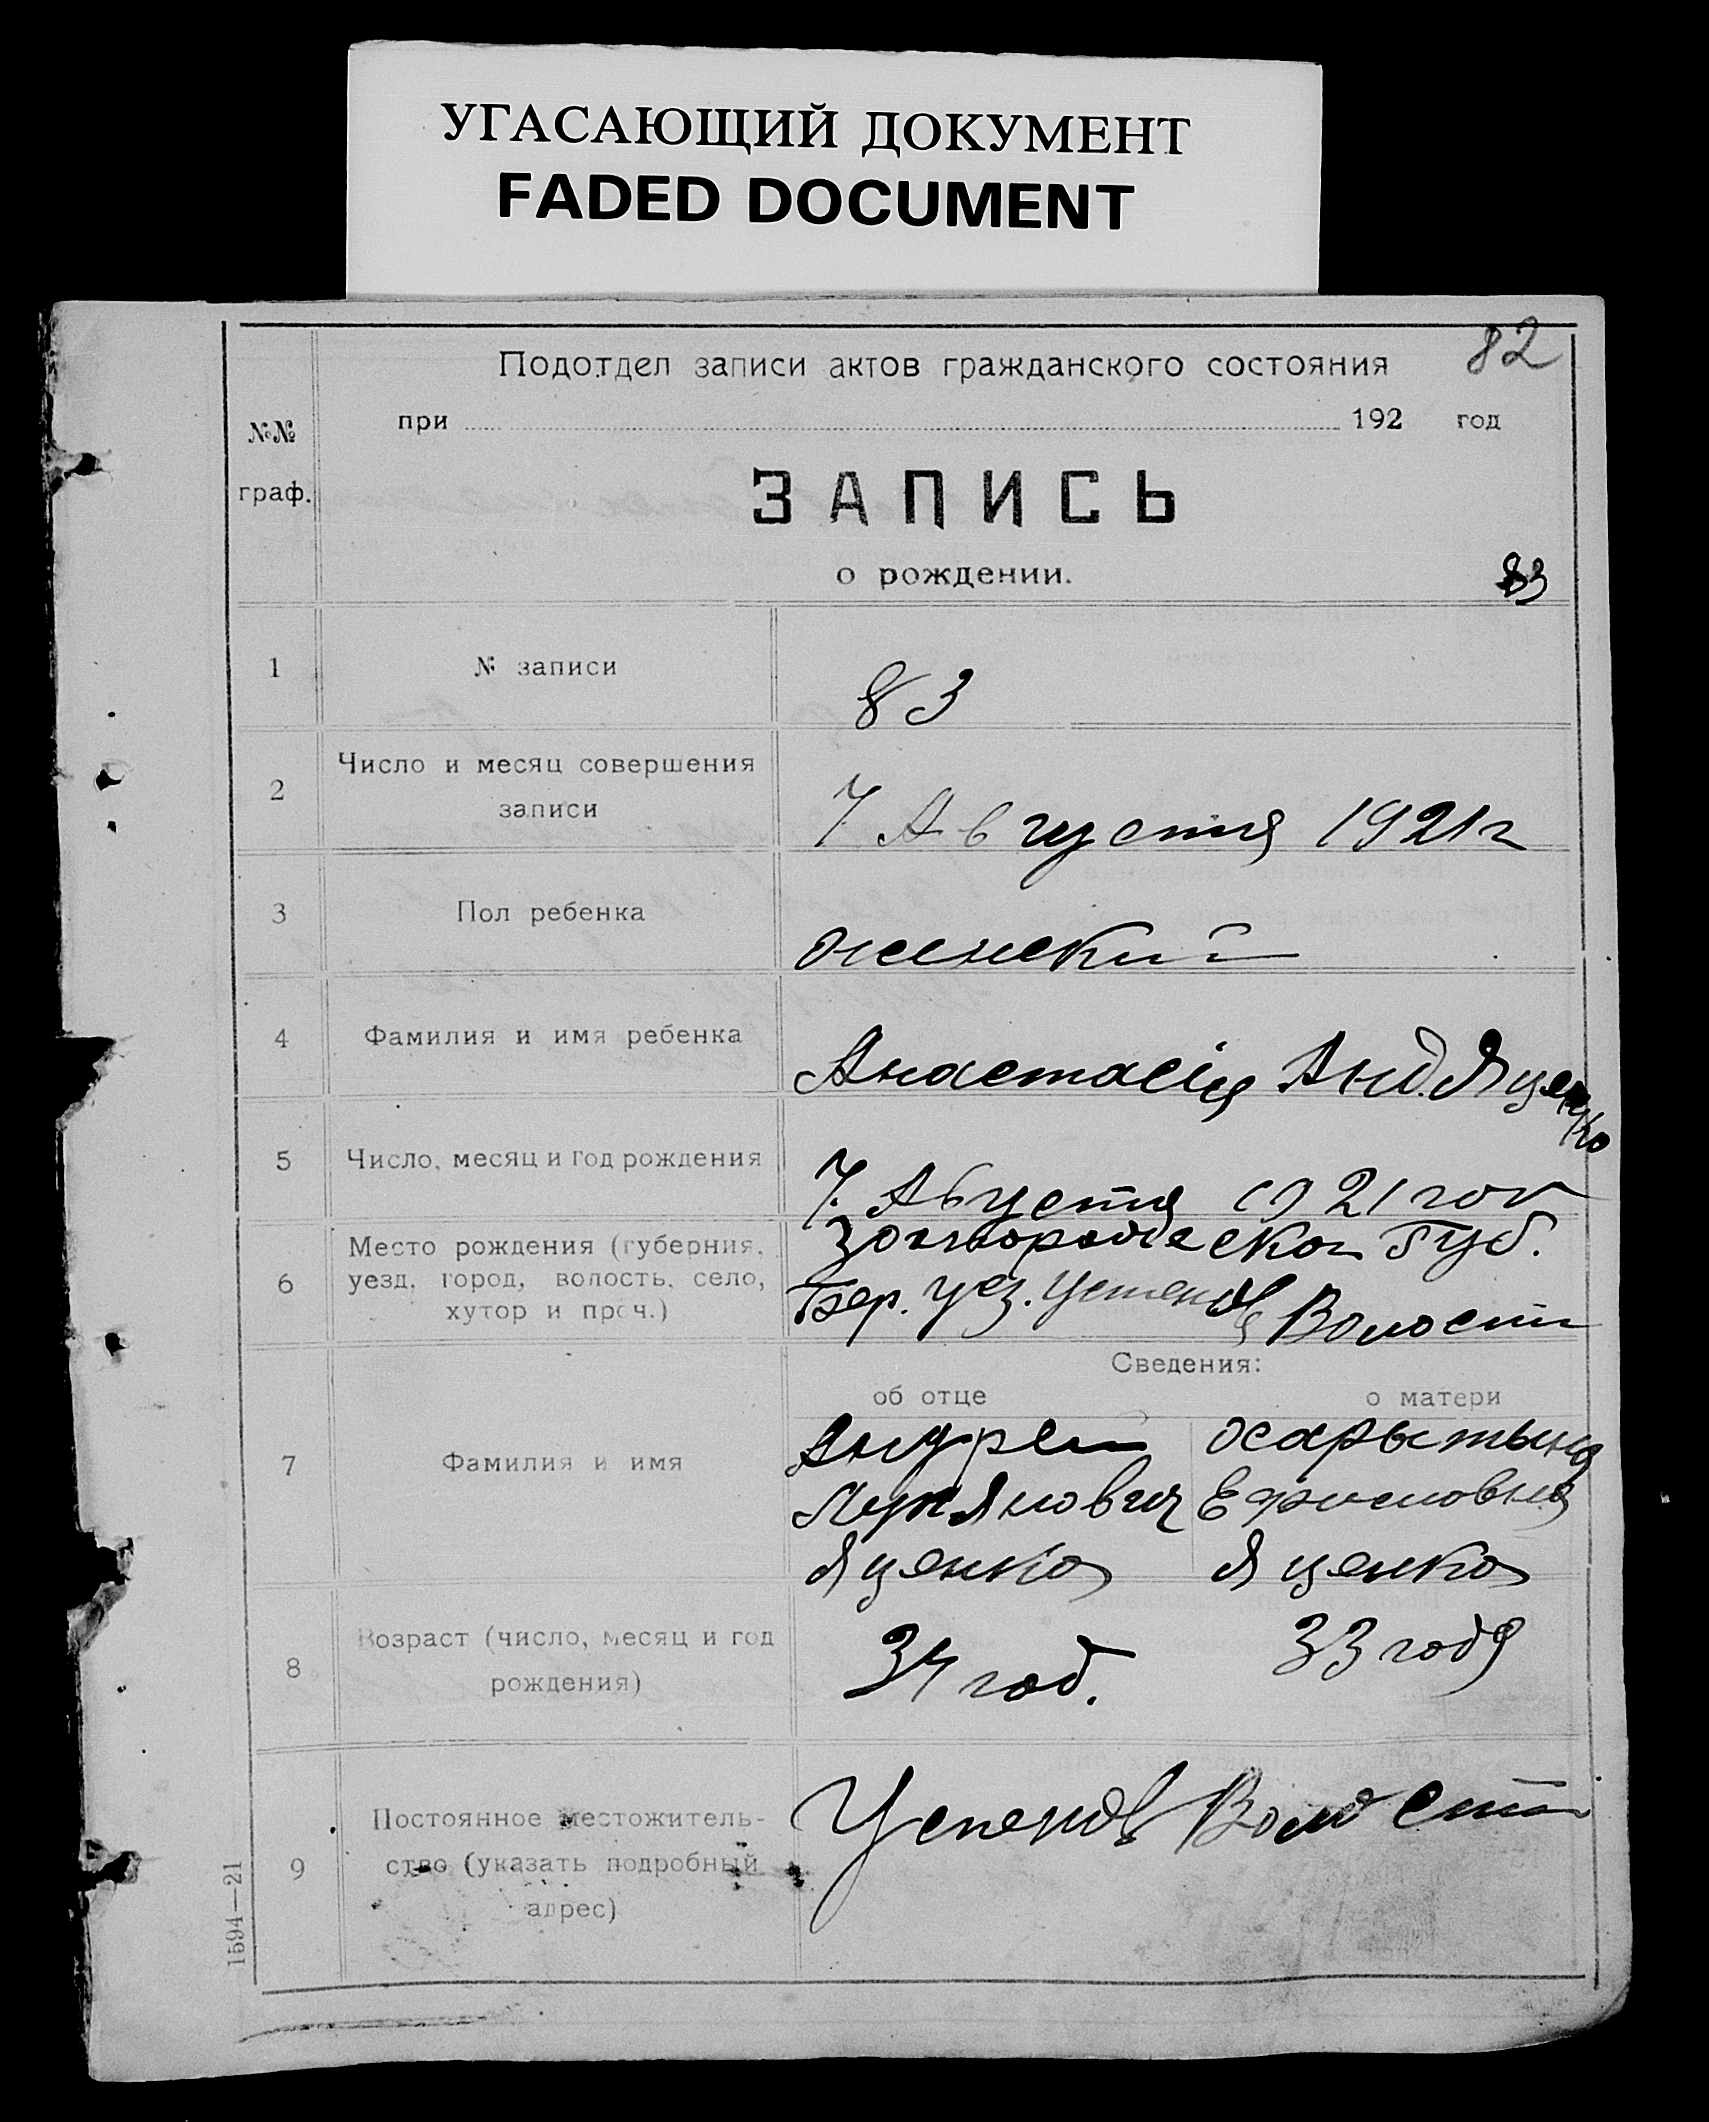 УГАСАЮЩИЙ ДОКУМЕНТ
FADED DOCUMENT
82
Подотдел записи актов гражданского состояния
при 192 год
№№
граф.
ЗАПИСЬ
о рождении.
83
1 № записи 83
2 Число и месяц совершения
записи
7 Августа 1921 г
3 Пол ребенка женский
4 Фамилия и имя ребенка Анастасія Анд. Яценко
5 Число, месяц и год рождения 7. Августа 1921 год
6 Место рождения (губерния,
уезд, город, волость, село,
хутор и проч.)
Губ.
Бер. уез. Волости
Сведения:
об отце о матери
7 Фамилия и имя
Андрей
Лукянович
Яценко
Яценко
8 Возраст (число, месяц и год
рождения)
34 год. 33 года
9 Постоянное местожитель-
ство (указать подробный
адрес)
Успенов Волости
1594—21